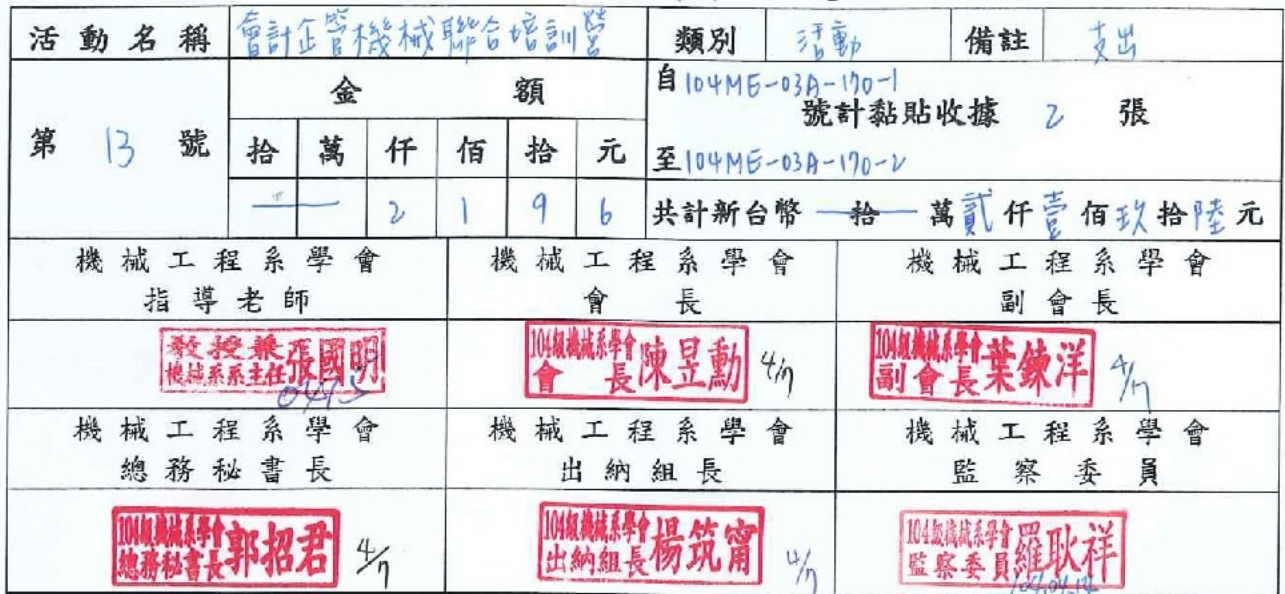 活動名稱 會計企管機械聯合培訓營 類別 活動 備註 支出
第 13 號
金額
拾 萬 仟 佰 拾 元
— 2 1 9 6
自104ME-03A-170-1
號計黏貼收據 2 張
至104ME-03A-170-2
共計新台幣 拾 萬 貳 仟 壹 佰 玖 拾 陸 元
機械工程系學會 機械工程系學會 機械工程系學會
指導老師 會長 副會長
教授兼
機械系系主任 張國明
104級機械系學會
會長 陳昱勳 4/7
104級機械系學會
副會長 葉鍊洋 4/7
機械工程系學會 機械工程系學會 機械工程系學會
總務秘書長 出納組長 監察委員
104級機械系學會
總務秘書長 郭招君 4/7
104級機械系學會
出納組長 楊筑甯 4/7
104級機械系學會
監察委員 羅耿祥